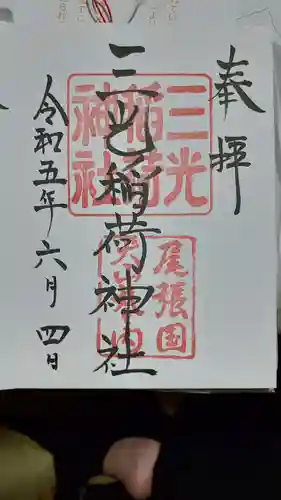 奉拝
三光稲荷神社
三光
稲荷
神社
尾張国
犬山
令和五年六月四日